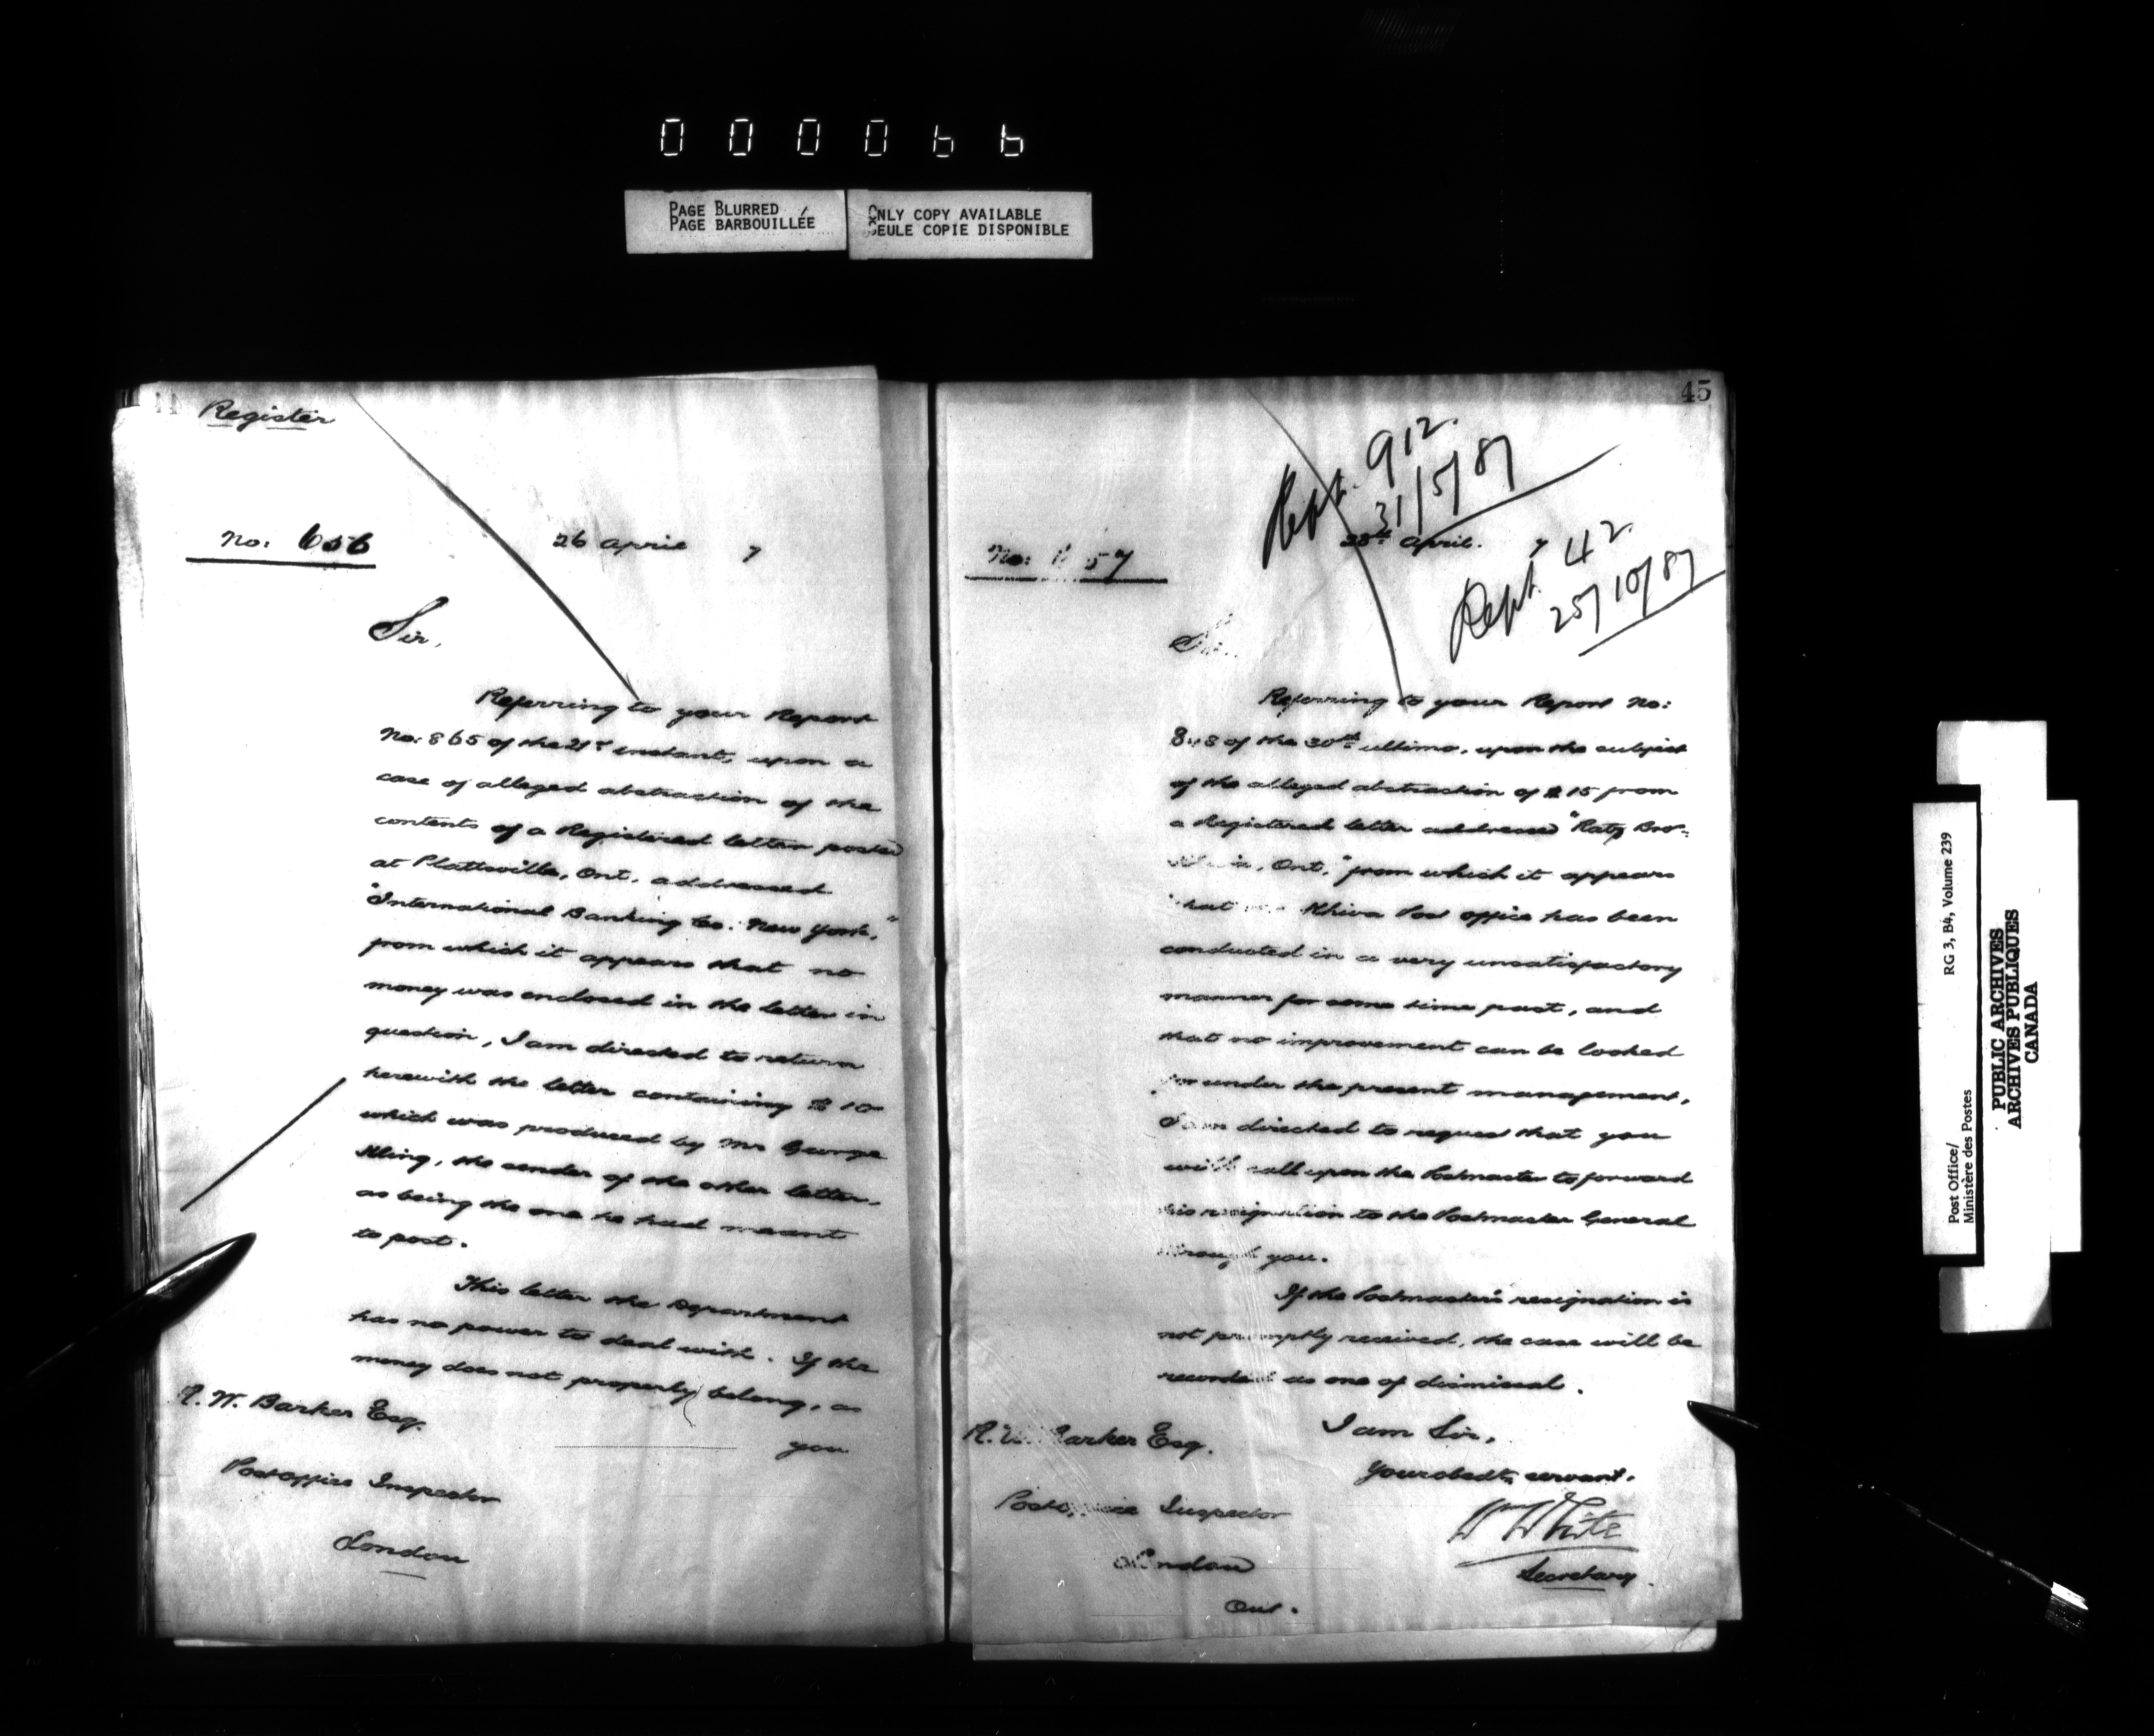 000066
PAGE BLURRED
PAGE BARBOUILLÉE
ONLY COPY AVAILABLE
SEULE COPIE DISPONIBLE
44
Register
No: 656 26 April 7
Sir,
Referring to your Report
No: 865 of the 21st instant, upon a
case of alleged abstraction of the
contents of a Registered letter posted
at Plattsville, Ont. addressed
"International Banking Co. New York,"
from which it appears that no
money was enclosed in the letter in
question, I am directed to return
herewith the letter containing $10
which was produced by Mr George
Kling, the sender of the other letter,
as being the one he had meant
to post.
This letter the Department
has no power to deal with. If the
money does not properly belong, as
you
R. W. Barker Esq.
Post office Inspector
London
45
Rept. 912.
31/5/87
No: 657 28th April. 7
Rept 42
25/10/87
Sir
Referring to your Report No:
848 of the 30th ultimo, upon the subject
of the alleged abstraction of $15 from
a Registered letter addressed "Ratz Bros.
Ont," from which it appears
that the Khiva Post office has been
conducted in a very unsatisfactory
manner for some time past, and
that no improvement can be looked
for under the present management,
I am directed to request that you
will call upon the Postmaster to forward
his resignation to the Postmaster General
through you.
If the Postmaster's resignation is
not promptly received, the case will be
recorded as one of dismissal.
I am Sir,
Your obedt. servant.
Wm White
Secretary.
R. W. Barker Esq.
Post office Inspector
London
Ont.
Post Office/ RG 3, B4, Volume 239
Ministère des Postes
PUBLIC ARCHIVES
ARCHIVES PUBLIQUES
CANADA